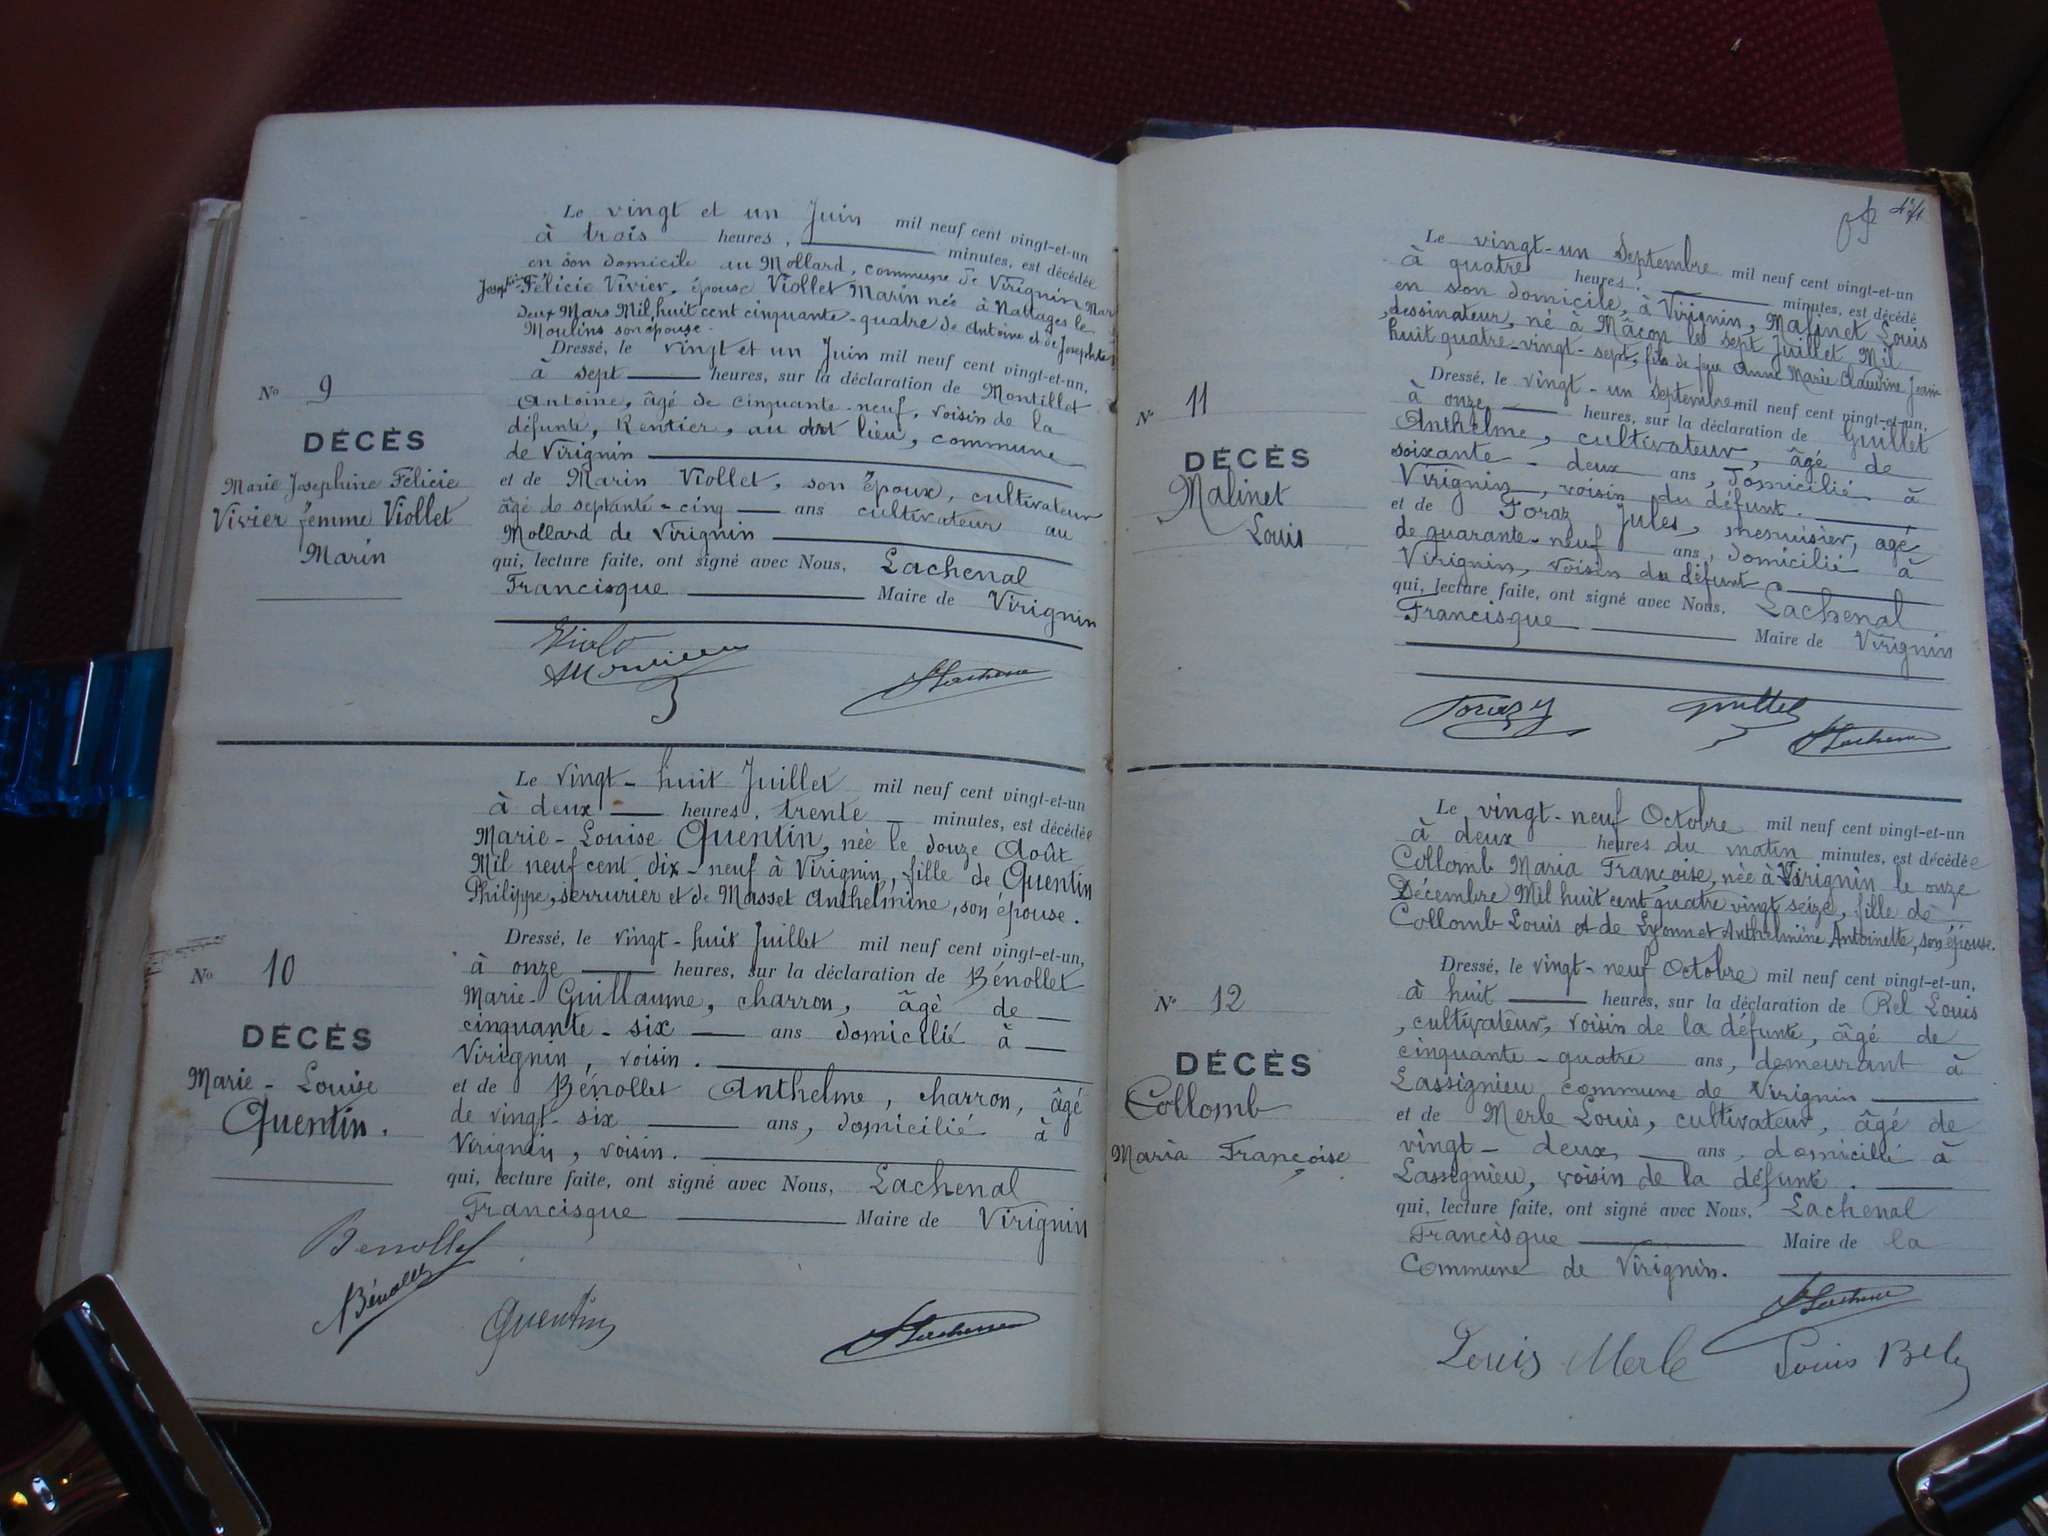 Le vingt et un Juin mil neuf cent vingt-et-un
à trois heures, minutes, est décédée
en son domicile au Mollard, commune de Virignin Marie
Joséphine Félicie Vivier, épouse Viollet Marin née à Nattages le
deux Mars Mil huit cent cinquante-quatre de Antoine et de Josephte
Moulins son épouse.
Dressé, le vingt et un Juin mil neuf cent vingt-et-un,
à sept heures, sur la déclaration de Montillet
Antoine, âgé de cinquante-neuf, voisin de la
défunte, Rentier, au dit lieu, commune
de Virignin
et de Marin Viollet, son époux, cultivateur
âgé de septante-cinq ans cultivateur au
Mollard de Virignin
qui, lecture faite, ont signé avec Nous, Lachenal
Francisque Maire de Virignin
No 9
DÉCÈS
Marie Josephine Félicie
Vivier femme Viollet
Marin
Le vingt-huit Juillet mil neuf cent vingt-et-un
à deux heures, trente minutes, est décédée
Marie-Louise Quentin, née le douze Août
Mil neuf cent dix-neuf à Virignin, fille de Quentin
Philippe, serrurier et de Masset Anthelmine, son épouse.
Dressé, le vingt-huit Juillet mil neuf cent vingt-et-un,
à onze heures, sur la déclaration de Bénollet
Marie-Guillaume, charron, âgé de
cinquante-six ans domicilié à
Virignin, voisin.
et de Bénollet Anthelme, charron, âgé
de vingt-six ans, domicilié à
Virignin, voisin.
qui, lecture faite, ont signé avec Nous, Lachenal
Francisque Maire de Virignin
No 10
DÉCÈS
Marie-Louise
Quentin.
Benollet
Bénollet
Quentin
Lachenal
Le vingt-un Septembre mil neuf cent vingt-et-un
à quatre heures, minutes, est décédé
en son domicile, à Virignin, Malinet Louis
, dessinateur, né à Mâcon le sept Juillet Mil
huit quatre-vingt-sept, fils de feue Anne Marie Claudine Jeanne
Dressé, le vingt-un Septembre mil neuf cent vingt-et-un,
à onze heures, sur la déclaration de Guillet
Anthelme, cultivateur, âgé de
soixante-deux ans, domicilié à
Virignin, voisin du défunt.
et de Foraz Jules, menuisier, âgé
de quarante-neuf ans, domicilié à
Virignin, voisin du défunt
qui, lecture faite, ont signé avec Nous, Lachenal
Francisque Maire de Virignin
No 11
DÉCÈS
Malinet
Louis
Foraz
Guillet
Lachenal
Le vingt-neuf Octobre mil neuf cent vingt-et-un
à deux heures du matin minutes, est décédée
Collomb Maria Françoise, née à Virignin le onze
Décembre Mil huit cent quatre vingt seize, fille de
Collomb Louis et de Lyonnet Anthelmine Antoinette, son épouse.
Dressé, le vingt-neuf Octobre mil neuf cent vingt-et-un,
à huit heures, sur la déclaration de Bel Louis
, cultivateur, voisin de la défunte, âgé de
cinquante-quatre ans, demeurant à
Lassignieu commune de Virignin
et de Merle Louis, cultivateur, âgé de
vingt-deux ans, domicilié à
Lassignieu, voisin de la défunte.
qui, lecture faite, ont signé avec Nous, Lachenal
Francisque Maire de la
Commune de Virignin.
No 12
DÉCÈS
Collomb
Maria Françoise
Lachenal
Louis Merle Louis Bel